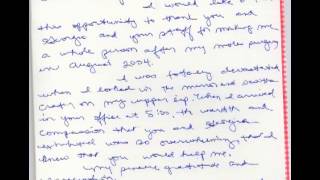 I would like
this opportunity to thank you and
Georgia and your staff for making me
a whole person after my mohs surgery
in August 2004.
I was totally devastated
when I looked in the mirror and saw the
crater on my upper lip. When I arrived
in your office at 5:00, the warmth and
compassion that you and Georgia
exhibited was so overwhelming, that I
knew that you would help me.
My sincere gratitude and